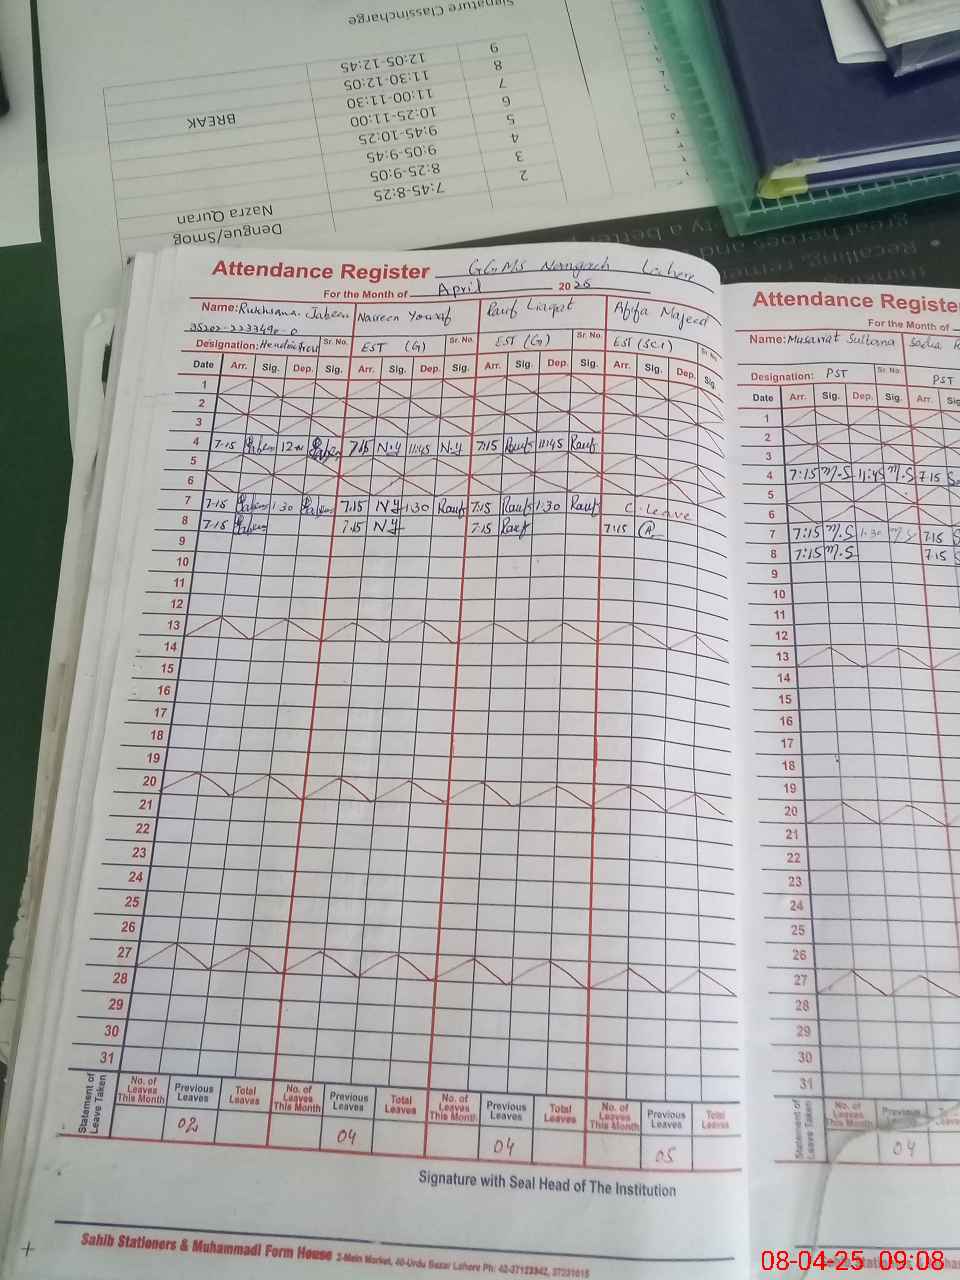 Signature Classincharge
9 12:05-12:45
8 11:30-12:05
7 11:00-11:30
6 10:25-11:00 BREAK
5 9:45-10:25
4 9:05-9:45
3 8:25-9:05
2 7:45-8:25
Nazra Quran
Dengue/Smog
Attendance Register GGMS Lahore
For the Month of April 2025
Name: Rukhsana Jabeen Nasreen Yousaf Rauf Liaqat Afifa Majeed
Designation: Sr. No. EST (G) Sr. No. EST (G) Sr. No. EST (SCI) Sr. No.
Date Arr. Sig. Dep. Sig. Arr. Sig. Dep. Sig. Arr. Sig. Dep. Sig. Arr. Sig. Dep. Sig.
1
2
3
4 7:15 Jabeen 12 Jabeen 7:15 N.Y 11:45 N.Y 7:15 Rauf 11:45 Rauf
5
6
7 7:15 Jabeen 1:30 Jabeen 7:15 N Y 1:30 Rauf 7:15 Rauf 1:30 Rauf C-leave
8 7:15 Jabeen 7:15 N Y 7:15 Rauf 7:15
9
10
11
12
13
14
15
16
17
18
19
20
21
22
23
24
25
26
27
28
29
30
31
Statement of Leave Taken
No. of Leaves This Month Previous Leaves Total Leaves No. of Leaves This Month Previous Leaves Total Leaves No. of Leaves This Month Previous Leaves Total Leaves No. of Leaves This Month Previous Leaves Total Leaves
02 04 04 05
Signature with Seal Head of The Institution
Sahib Stationers & Muhammadi Form House 2-Main Market, 40-Urdu Bazar Lahore Ph: 42-37123942, 37231615
great heroes and
• Recalling, remem
Attendance Register
For the Month of
Name: Musarrat Sultana Sadia
Designation: PST Sr. No. PST
Date Arr. Sig. Dep. Sig. Arr.
1
2
3
4 7:15 M.S 11:45 M.S 7:15
5
6
7 7:15 M.S 1:30 M.S 7:15
8 7:15 M.S 7:15
9
10
11
12
13
14
15
16
17
18
19
20
21
22
23
24
25
26
27
28
29
30
31
Statement of Leave Taken
No. of Leaves This Month Previous Leaves Total Leaves
04
08-04-25 09:08